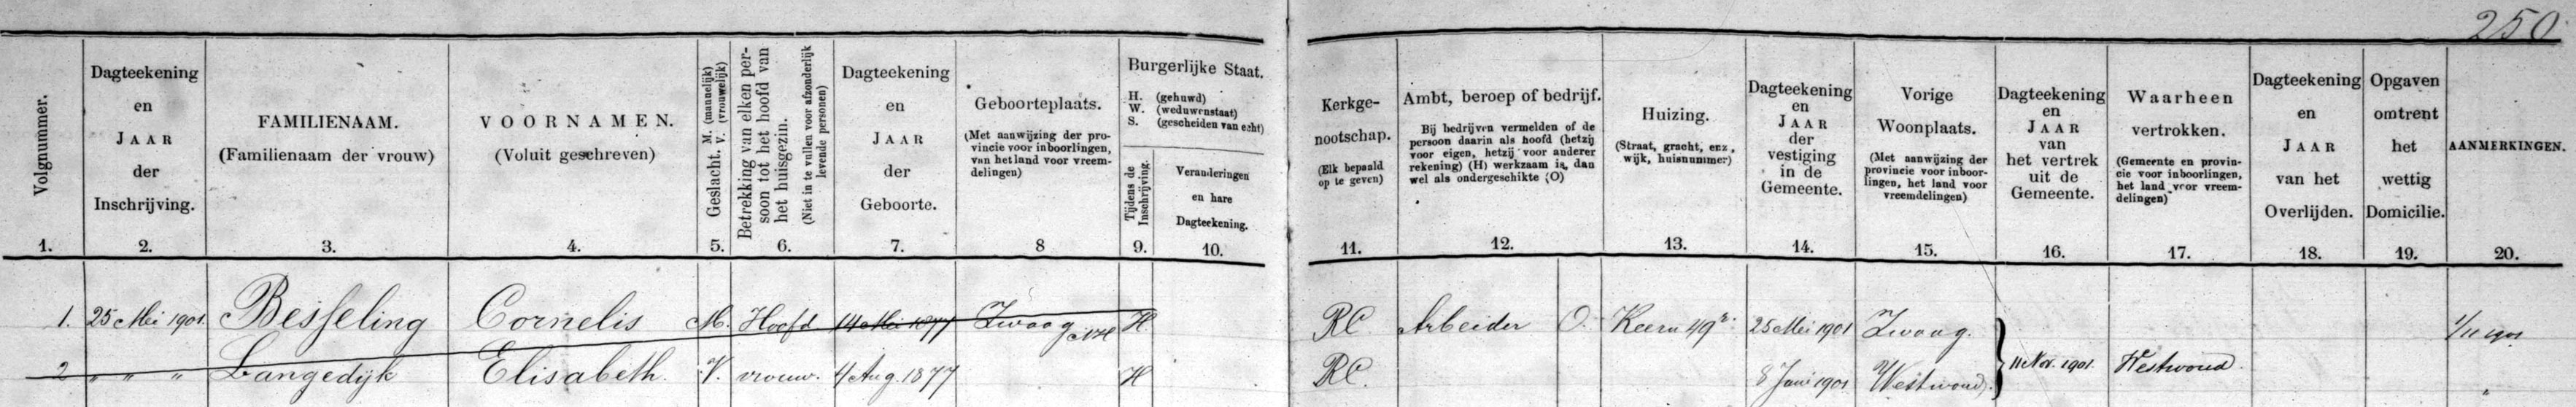 250
Volgnummer.
1.
Dagteekening
en
JAAR
der
Inschrijving.
2.
FAMILIENAAM.
(Familienaam der vrouw)
3.
VOORNAMEN.
(Voluit geschreven)
4.
Geslacht. M. (mannelijk)
V. (vrouwelijk)
5.
Betrekking van elken per-
soon tot het hoofd van
het huisgezin.
(Niet in te vullen voor afzonderlijk
levende personen)
6.
Dagteekening
en
JAAR
der
Geboorte.
7.
Geboorteplaats.
(Met aanwijzing der pro-
vincie voor inboorlingen,
van het land voor vreem-
delingen)
8
Burgerlijke Staat.
H. (gehuwd)
W. (weduwenstaat)
S. (gescheiden van echt)
Tijdens de
Inschrijving.
9.
Veranderingen
en hare
Dagteekening.
10.
Kerkge-
nootschap.
(Elk bepaald
op te geven)
11.
Ambt, beroep of bedrijf.
Bij bedrijven vermelden of de
persoon daarin als hoofd (hetzij
voor eigen, hetzij voor anderer
rekening) (H) werkzaam is, dan
wel als ondergeschikte (O)
12.
Huizing.
(Straat, gracht, enz,
wijk, huisnummer)
13.
Dagteekening
en
JAAR
der
vestiging
in de
Gemeente.
14.
Vorige
Woonplaats.
(Met aanwijzing der
provincie voor inboor-
lingen, het land voor
vreemdelingen)
15.
Dagteekening
en
JAAR
van
het vertrek
uit de
Gemeente.
16.
Waarheen
vertrokken.
(Gemeente en provin-
cie voor inboorlingen,
het land voor vreem-
delingen)
17.
Dagteekening
en
JAAR
van het
Overlijden.
18.
Opgaven
omtrent
het
wettig
Domicilie.
19.
AANMERKINGEN.
20.
1. 25 Mei 1901. Besseling Cornelis M. Hoofd 14 Mei 1877 Zwaag NH H RC Arbeider O. Keern 49 25 Mei 1901 Zwaag. 1/11 1901
2 " " " Langedijk Elisabeth. V. vrouw. 4 Aug. 1877 H RC. 8 Juni 1901 Westwoud. 11 Nov. 1901 Westwoud. "